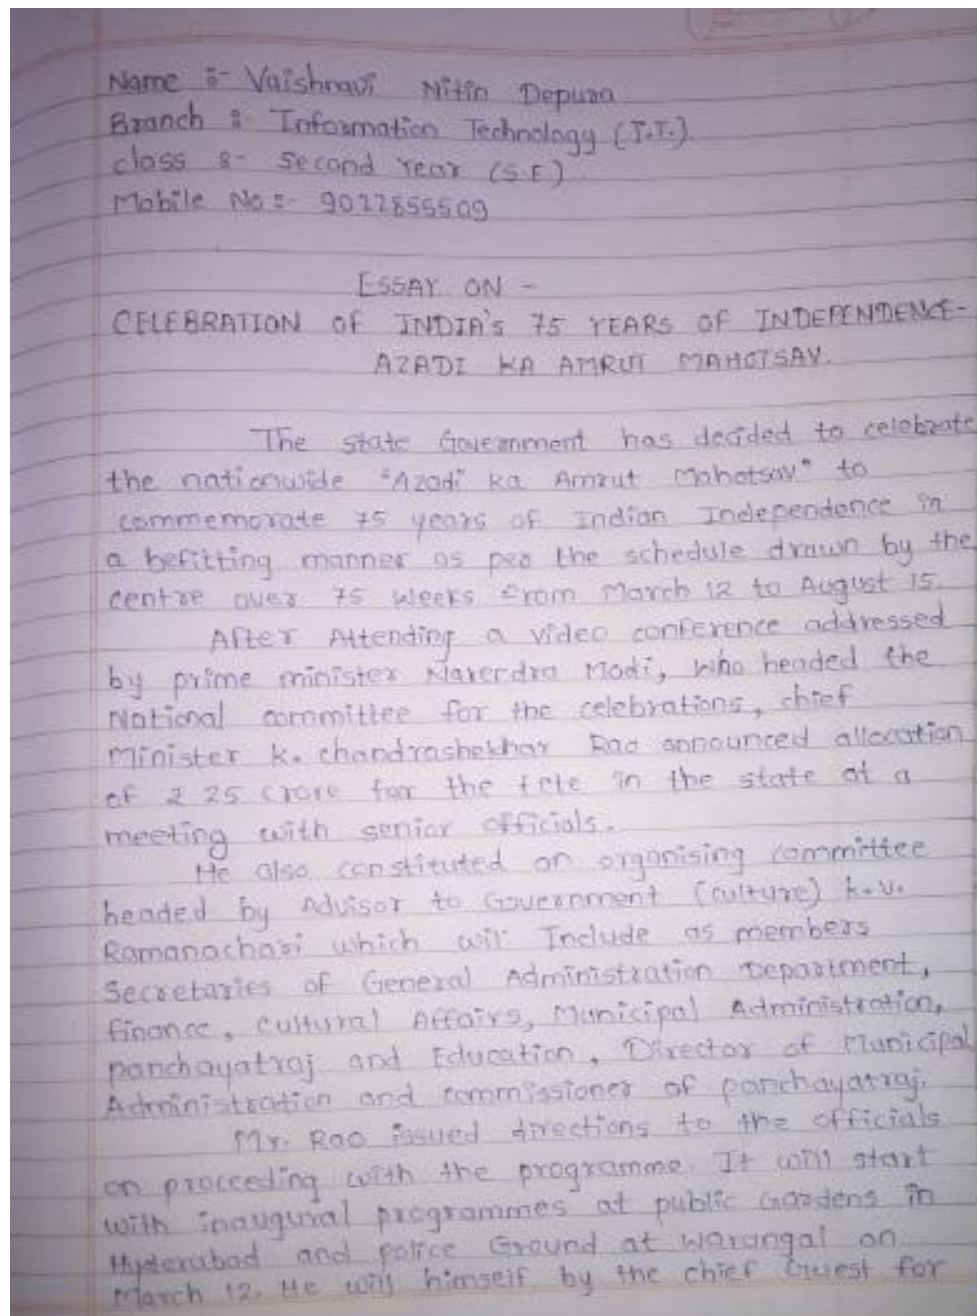 Name :- Vaishnavi Nitin Depura
Branch :- Information Technology (I.T.).
class :- Second Year (S.E)
Mobile No :- 9022855509
ESSAY ON -
CELEBRATION OF INDIA'S 75 YEARS OF INDEPENDENCE-
AZADI KA AMRUT MAHOTSAV.
The state Government has decided to celebrate
the nationwide "Azadi ka Amrut Mahotsav" to
commemorate 75 years of Indian Independence in
a befitting manner as per the schedule drawn by the
centre over 75 weeks from March 12 to August 15.
After Attending a video conference addressed
by prime minister Narendra Modi, who headed the
National committee for the celebrations, chief
Minister K. chandrashekhar Rao announced allocation
of ₹ 25 crore for the fete in the state at a
meeting with senior officials.
He also constituted an organising committee
headed by Advisor to Government (culture) k.v.
Ramanachari which will Include as members
Secretaries of General Administration Department,
finance, cultural Affairs, Municipal Administration,
panchayatraj and Education, Director of Municipal
Administration and commissioner of panchayatraj.
Mr. Rao issued directions to the officials
on proceeding with the programme. It will start
with inaugural programmes at public Gardens in
Hyderabad and police Ground at warangal on
March 12. He will himself by the chief Guest for